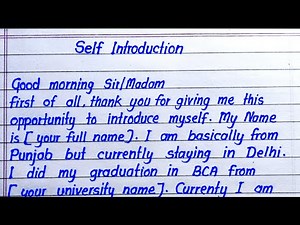 Self Introduction
Good morning Sir/Madam
first of all, thank you for giving me this
opportunity to introduce myself. My Name
is [your full name]. I am basically from
Punjab but currently staying in Delhi.
I did my graduation in BCA from
[your university name]. Currenty I am